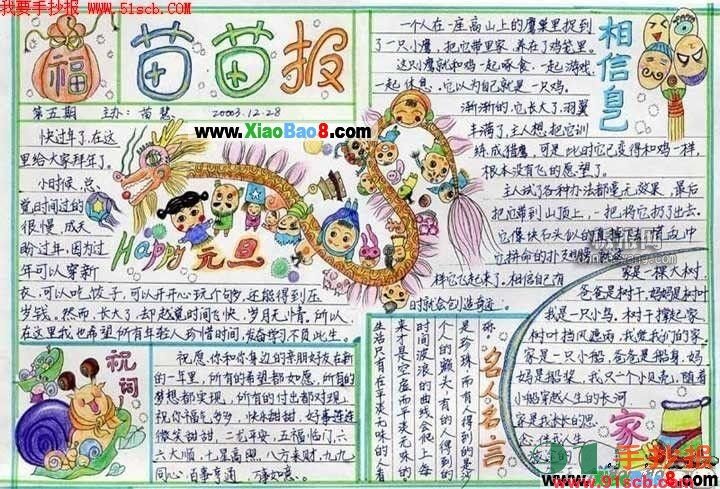 我要手抄报 www.51scb.com
福
苗苗报
第五期 主办：苗慧 2003.12.28
www.XiaoBao8.com
快过年了，在这
里给大家拜年了。
小时候，总
觉时间过的
很慢，成天
盼过年，因为过
年可以穿新
衣，可以吃饺子，可以开开心玩个够，还能得到压
岁钱。然而，长大了，却越觉时间飞快，岁月无情。所以，
在这里我也希望所有年轻人珍惜时间，发奋学习不负此生。
Happy 元旦
相信自己
一个人在一座高山上的鹰巢里捉到
了一只小鹰，把它带回家，养在了鸡笼里。
这只鹰就和鸡一起啄食，一起游戏，
一起休息，它以为自己就是一只鸡。
渐渐的，它长大了，羽翼
丰满了，主人想把它训
练成猎鹰，可是，此时它已变得和鸡一样，
根本没有飞的愿望了。
主人试了各种办法都毫无效果，最后
把它带到山顶上，一把将它扔了出去。
它像块石头似的
它拼命的扑
样它飞起来了。相信自己有
时就会创造奇迹。
祝词
祝愿你和你身边的亲朋好友在新
的一年里，所有的希望都如愿，所有的
梦想都实现，所有的付出都对现。
祝你福气多多，快乐甜甜，好事连连
微笑甜甜，二老平安，五福临门，六
六大顺，七星高照，八方来财，九九
同心，百事亨通，万事如意。
名人名言
是珍珠，而有人得到的是沙
个人的额头，有的人得到的
时间波浪的曲线会爬上每
来才是空虚而平淡无味的。
生活只有在平淡无味的人看
家
家是一棵大树，
爸爸是树干，妈妈是树叶
我是一只小鸟，树干撑起家
树叶挡风遮雨，我觉我们的家
家是一只小船，爸爸是船身，妈
妈是船桨，我只一个小贝壳，随着
小船穿越人生的长河
家是我永远的思
念，伴我人生
手抄报
www.91scb.com